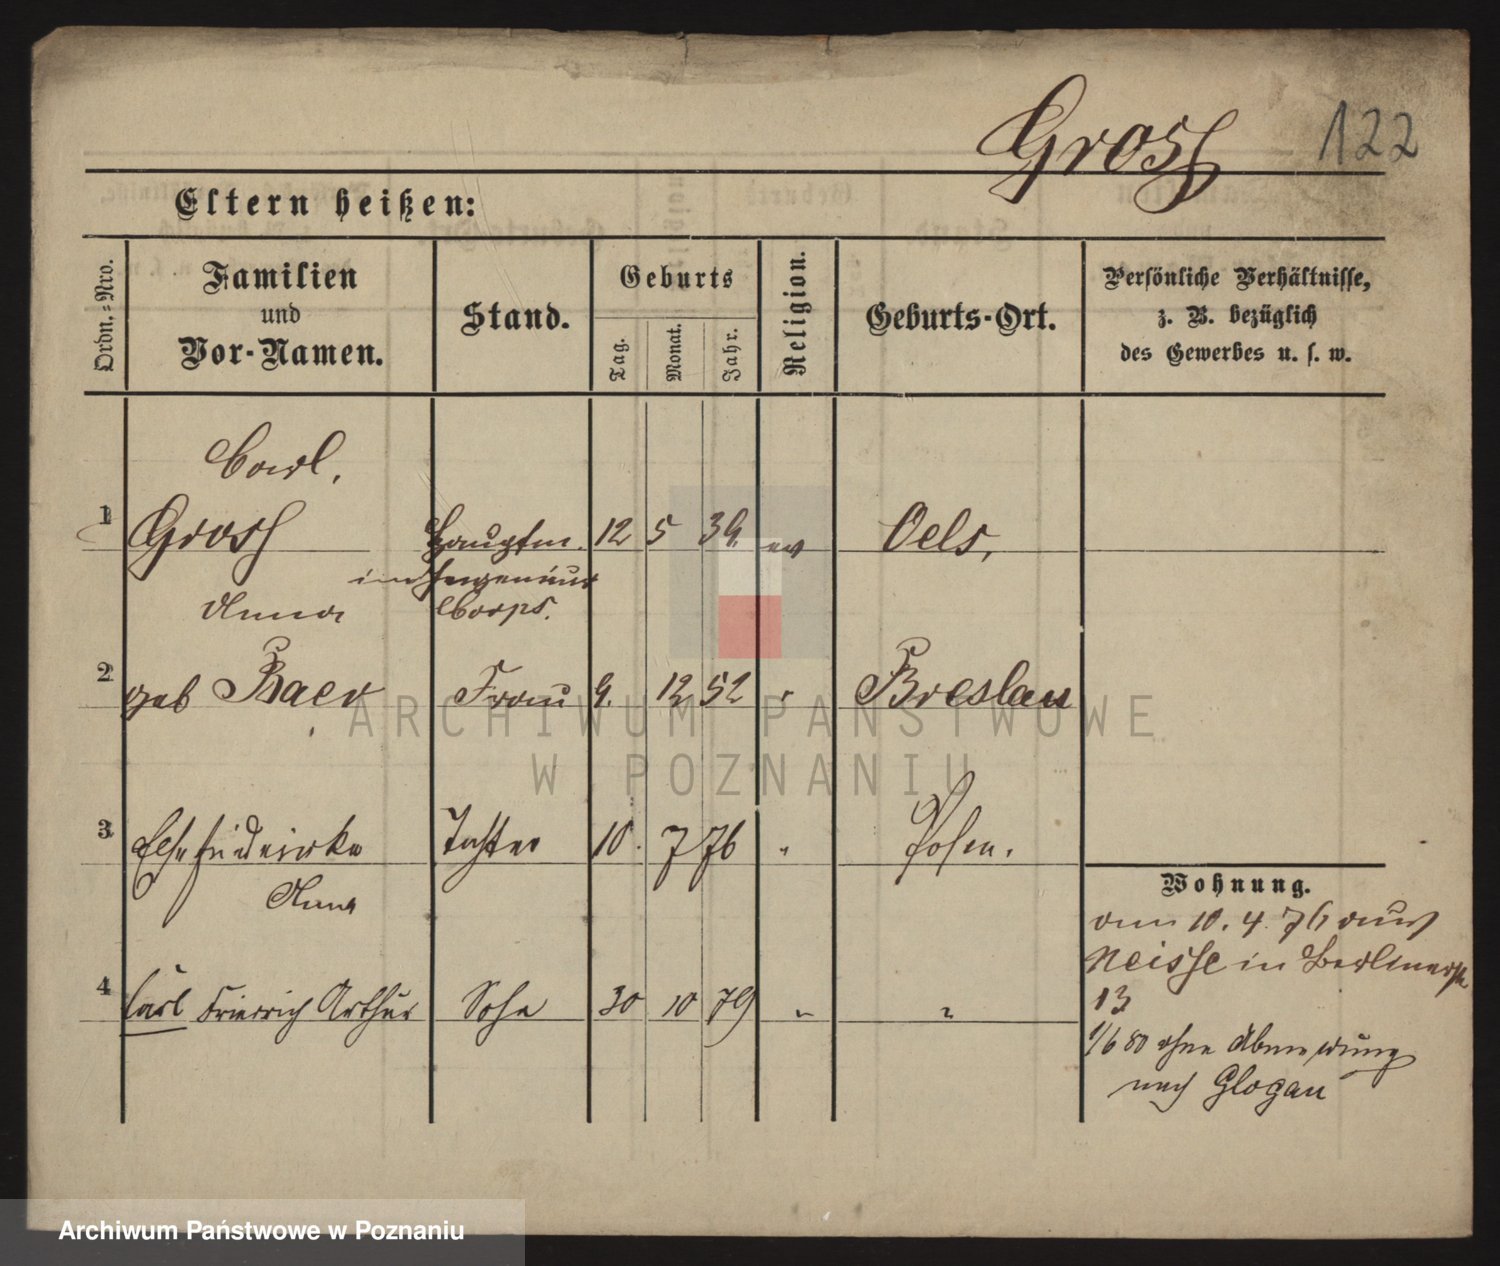 Gross 122
Eltern heißen:
Ordn.-Nro.
Familien
und
Vor-Namen.
Stand.
Geburts
Tag.
Monat.
Jahr.
Religion.
Geburts-Ort.
Persönliche Verhältnisse,
z. B. bezüglich
des Gewerbes u. s. w.
Carl.
1 Gross Hauptm. 12 5 39 ev Oels.
im Ingenieur
Anna Corps.
2 geb Baer Frau 9. 12 52 " Breslau
ARCHIWUM PAŃSTWOWE
W POZNANIU
3 Else Tochter 10. 7 76 " Posen.
Anna
Wohnung.
am 10. 4. 76 aus
Neisse in Berlinerstr
13
4 Carl Friedrich Arthur Sohn 30 10 79 " "
1/6 80 ohne Abmeldung
nach Glogau
Archiwum Państwowe w Poznaniu